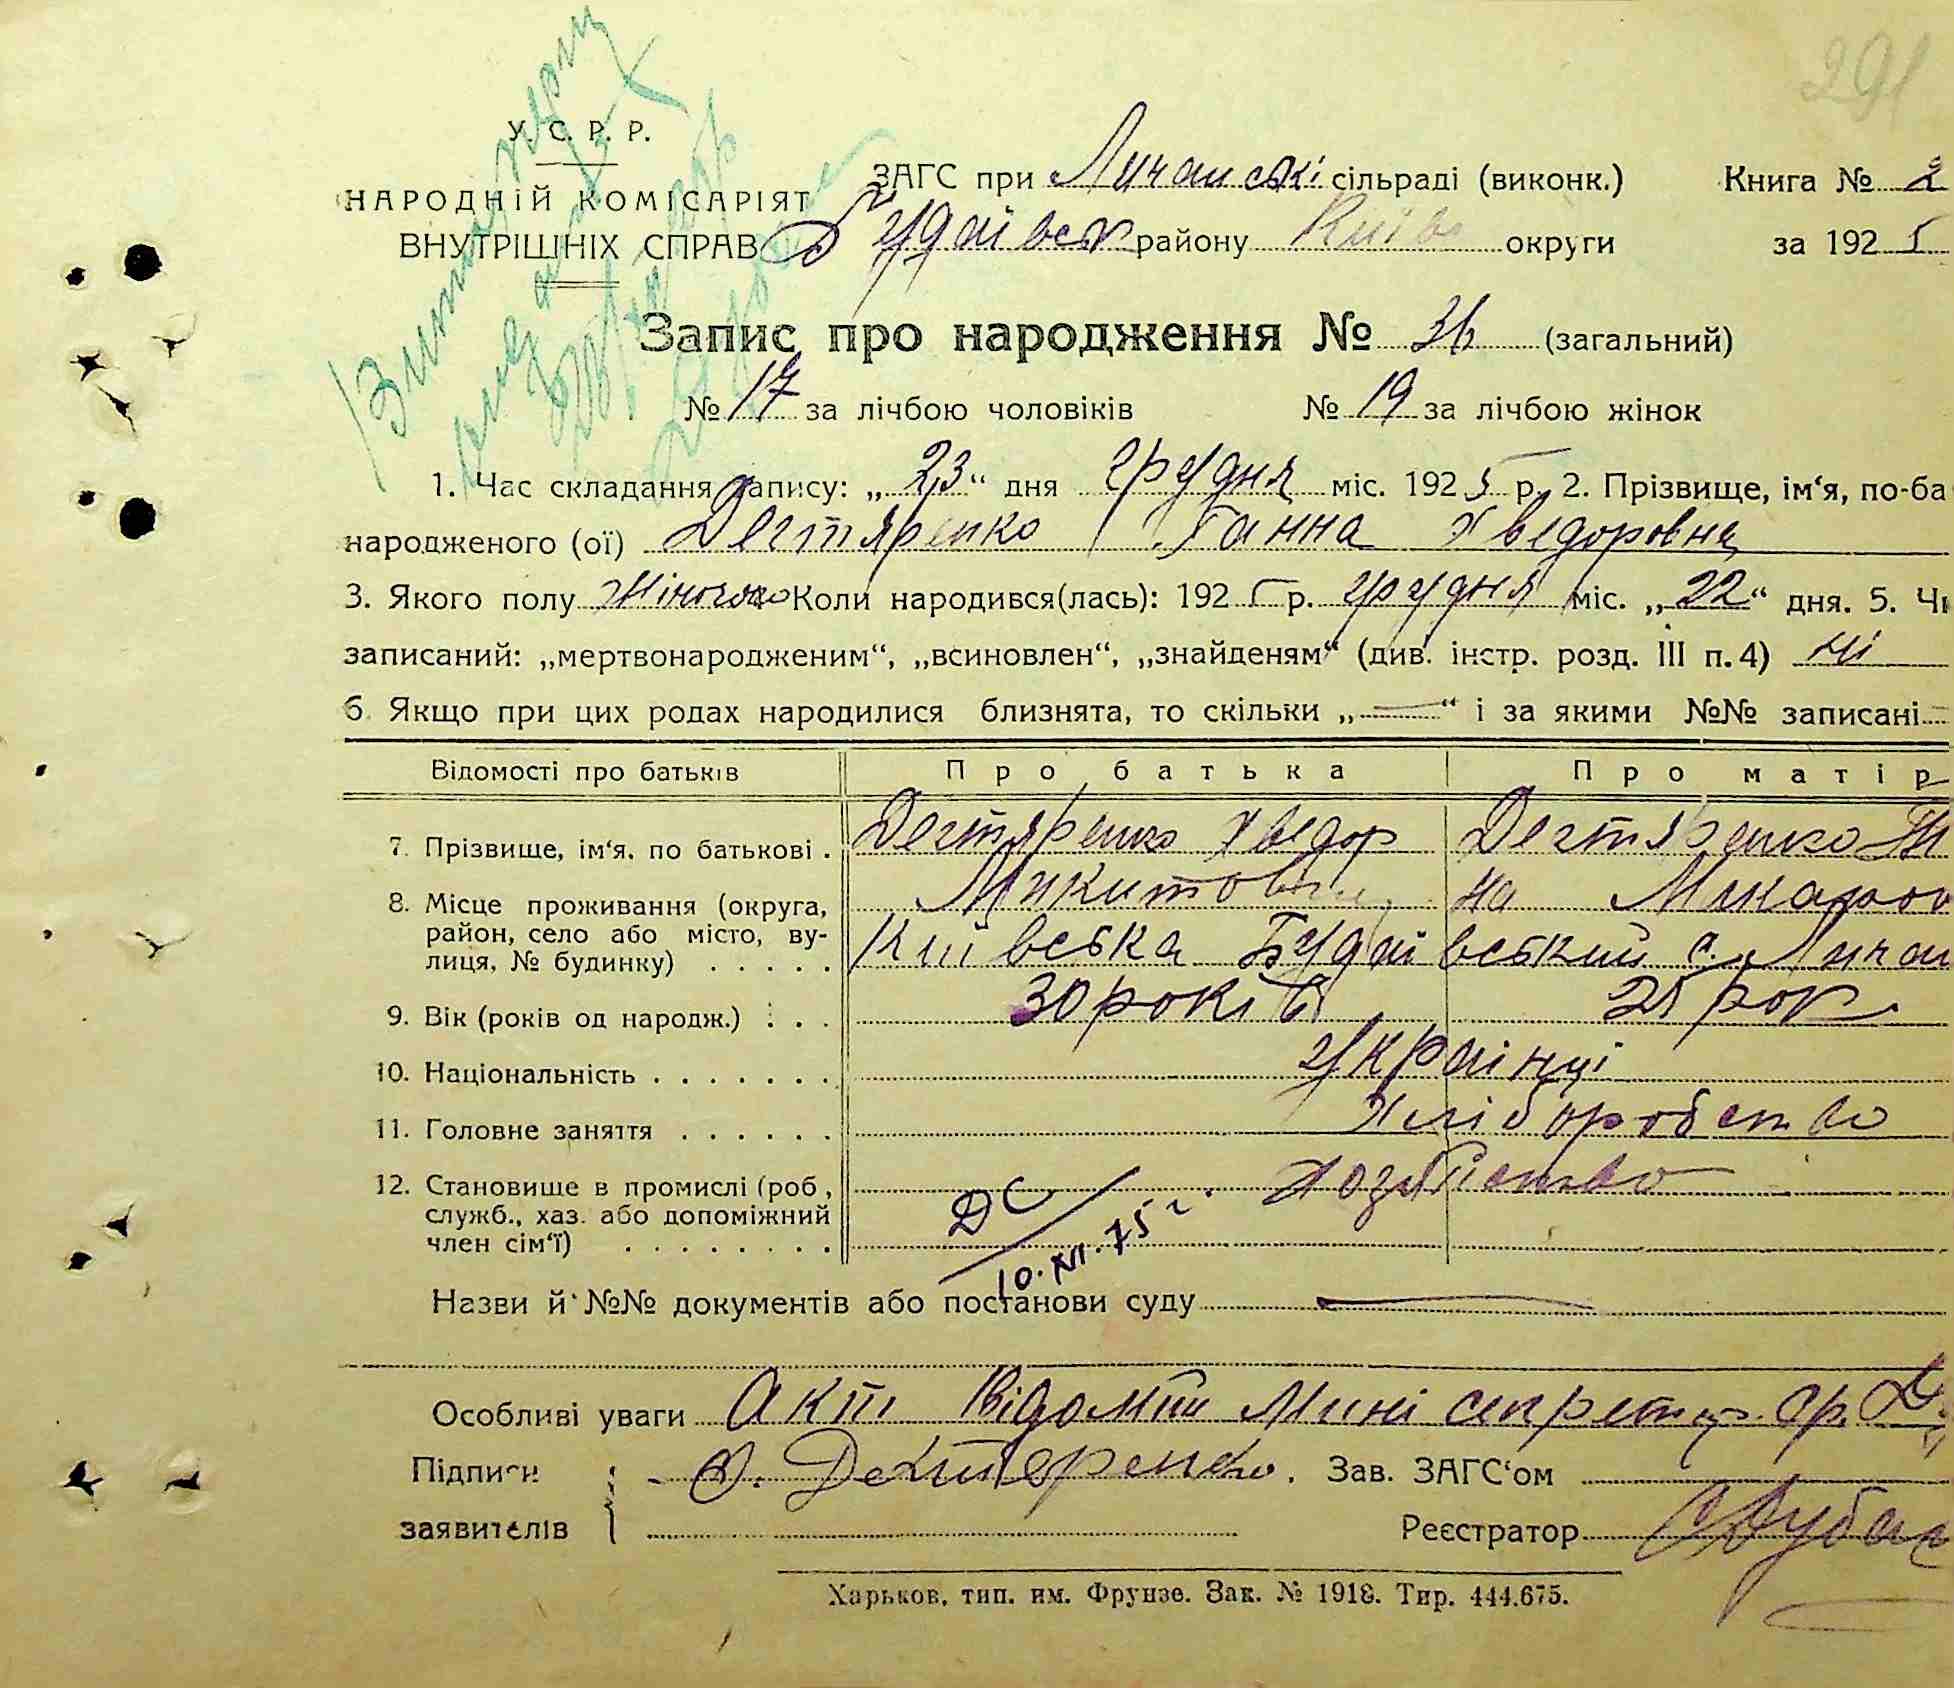 291
У. С. Р. Р.
НАРОДНІЙ КОМІСАРІЯТ
ВНУТРІШНІХ СПРАВ
ЗАГС при Личанські сільраді (виконк.) Книга № 2
Будаївськ району Київ округи за 1925
Запис про народження № 36 (загальний)
№ 17 за лічбою чоловіків № 19 за лічбою жінок
1. Час складання запису: „23“ дня грудня міс. 1925 р. 2. Прізвище, ім‘я, по-ба
народженого (ої) Дегтяренко Ганна Хведоровна
3. Якого полу жіночого Коли народився(лась): 1925 р. грудня міс. „22“ дня. 5. Чи
записаний: „мертвонародженим“, „всиновлен“, „знайденям“ (див. інстр. розд. III п. 4) ні
6. Якщо при цих родах народилися близнята, то скільки „—“ і за якими №№ записані
Відомості про батьків Про батька Про матір
7. Прізвище, ім‘я, по батькові . Дегтяренко Хведор Дегтяренко
Микитович на Макаров
8. Місце проживання (округа, район, село або місто, ву-
лиця, № будинку) . . . . . Київська Будаївський с. Личан
9. Вік (років од народж.) . . . 30 років 25 рок.
10. Національність . . . . . . . українці
11. Головне заняття . . . . . . Хліборобство
12. Становище в промислі (роб,
служб., хаз. або допоміжний
член сім‘ї) . . . . . . . . Хозяйство
ДС
10.XI.75 г.
Назви й №№ документів або постанови суду —
Особливі уваги Акт відомий мині секретар. гр. Д
Підписи Ф. Дехтеренко. Зав. ЗАГС‘ом
заявителів Реєстратор
Харьков, тип. им. Фрунзе. Зак. № 1918. Тир. 444.675.